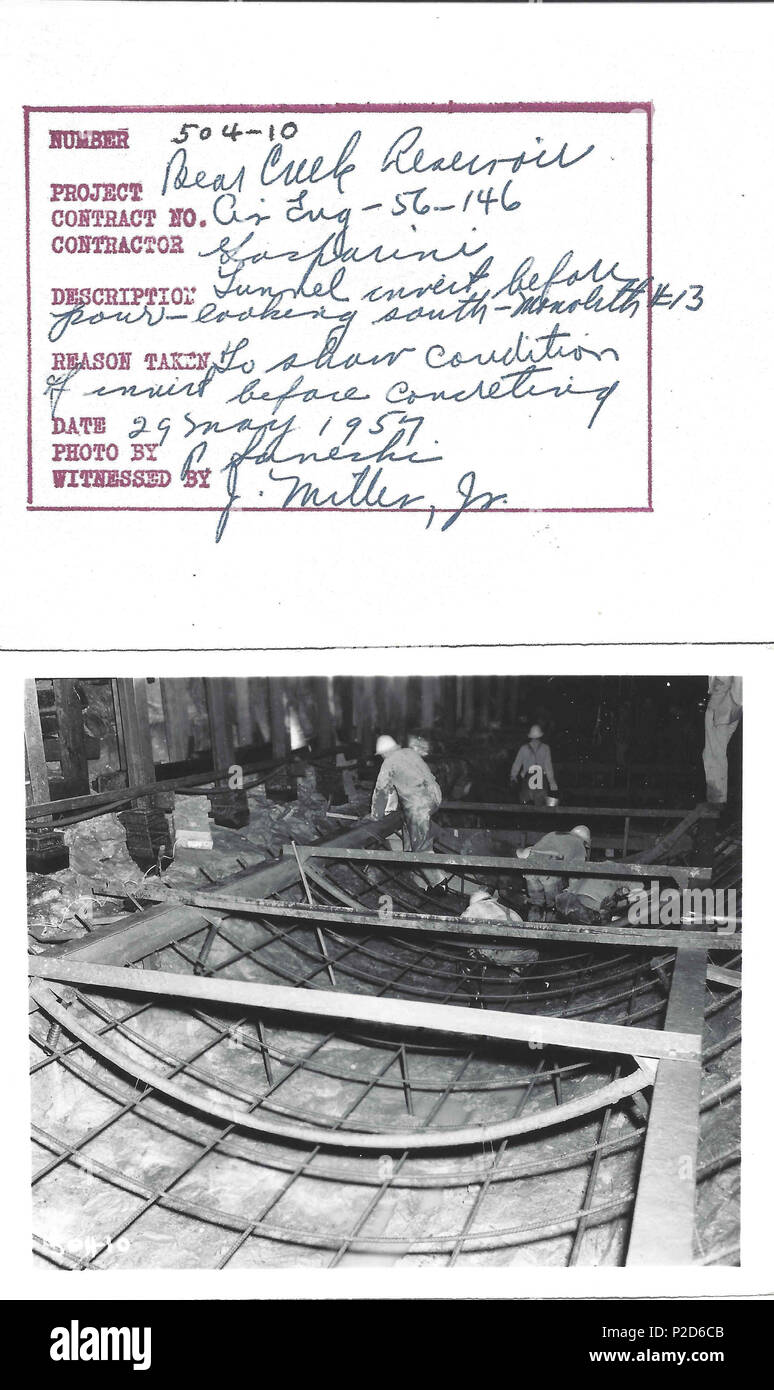 NUMBER 504-10
PROJECT Bear Creek Reservoir
CONTRACT NO. Civ Eng-56-146
CONTRACTOR Gasparini
DESCRIPTION Tunnel invert before
pour-looking south-Monolith #13
REASON TAKEN To show condition
of invert before concreting
DATE 29 May 1957
PHOTO BY P
WITNESSED BY J. Miller, Jr.
504-10
alamy
Image ID: P2D6CB
www.alamy.com